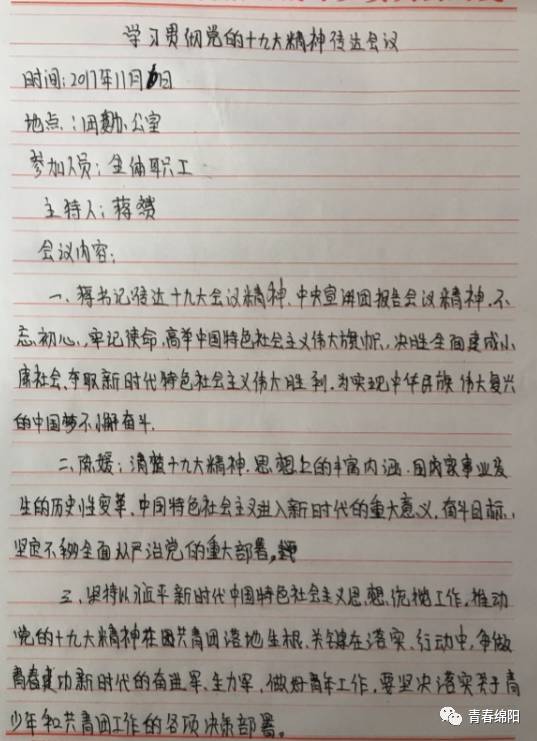 学习贯彻党的十九大精神传达会议
时间:2017年11月6日
地点:团勤办公室
参加人员:全体职工
主持人:蒋赟
会议内容:
一、蒋书记传达十九大会议精神.中央宣讲团报告会议精神.不
忘初心,牢记使命,高举中国特色社会主义伟大旗帜,决胜全面建成小
康社会,夺取新时代特色社会主义伟大胜利,为实现中华民族伟大复兴
的中国梦不懈奋斗.
二、陈媛:清楚十九大精神.思想上的丰富内涵.国内家事业发
生的历史性变革.中国特色社会主义进入新时代的重大意义.奋斗目标,
坚定不移全面从严治党的重大部署。
三、坚持以习近平新时代中国特色社会主义思想统揽工作,推动
党的十九大精神在团共青团落地生根.关键在落实、行动中,争做
青春建功新时代的奋进军、生力军,做好青年工作,要坚决落实关于青
少年和共青团工作的各项决策部署。
青春绵阳